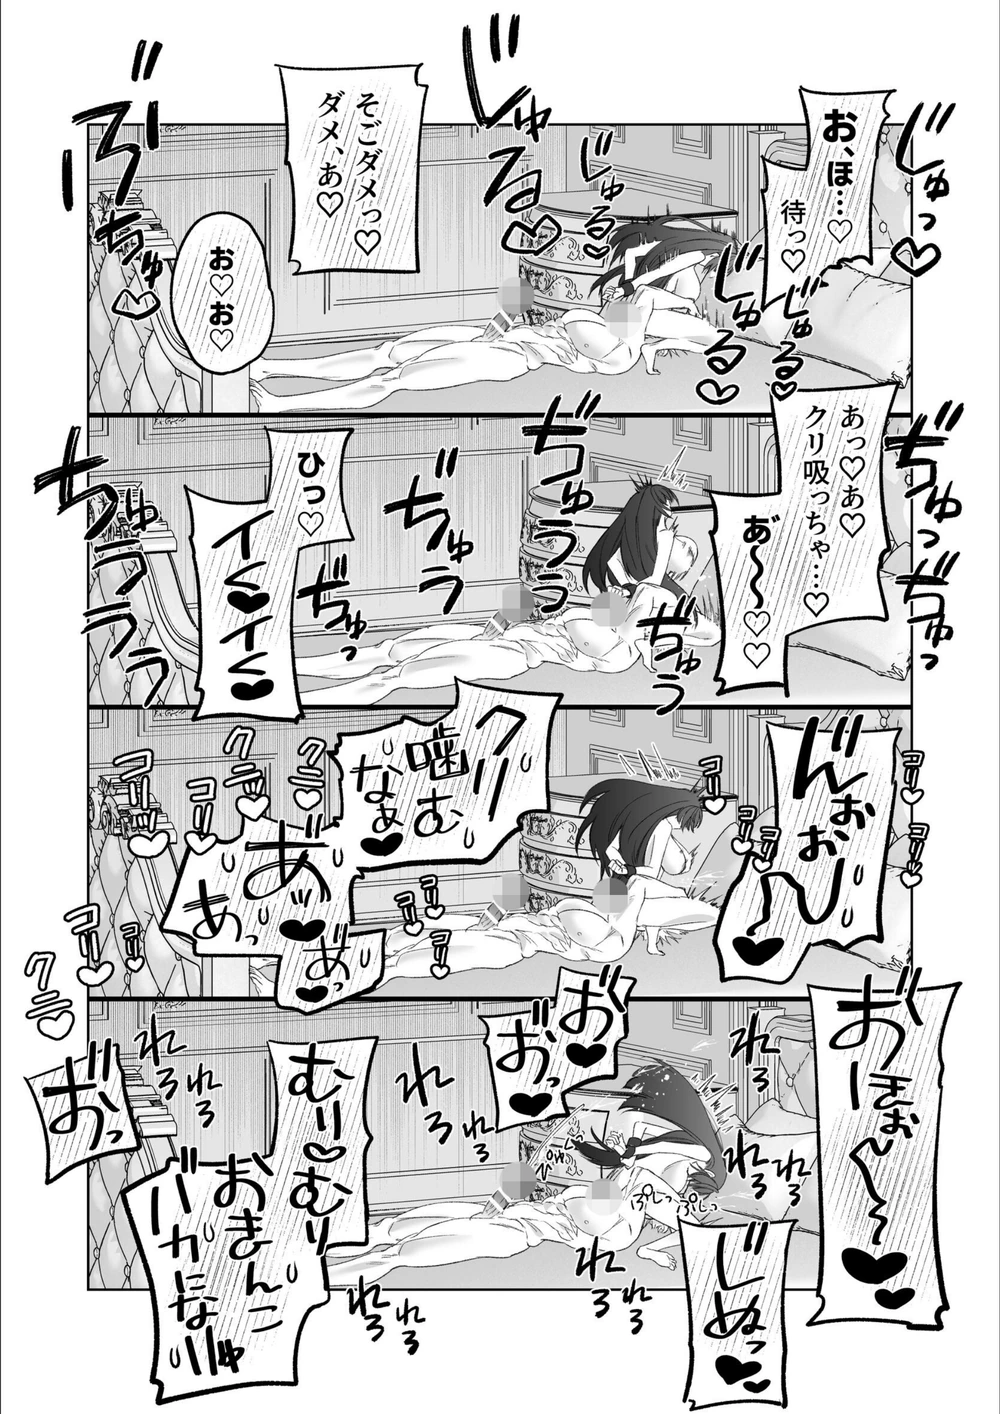 お、ほ…♡
待っ♡
じゅっ♡
じゅる♡
じゅる♡
じゅる♡
じゅるる♡
そごダメっ♡
ダメ、あ♡
お♡お♡
ぶちゅ♡
あっ♡あ♡
クリ吸っちゃ…♡
あ゙〜♡♡
ぢゅっ
ぢゅっ
ぢゅうう
ぢゅう
ぢゅう
ぢゅっ
ひっ♡
イく♥イく♥
ぢゅうううう
んおぉ〜♥
コリ♡
コリ♡
コリ♡
コリ♡
コリ♡
クリ
噛む
なぁ♥
あ゙ッ♥
あ゙っ♥
あっ
クニ♡
クニ♡
コリ♡
コリ♡
コリ♡
コリ♡
コリ♡
コリ♡
クニ♡
おほぉ〜〜♥♥
じぬっ♥♥
お♥
お゙っ♥
れろ
れろ
れろ
ぷしっ
ぷしっ
ぴゅ
れろ
れろ
れろ
れろ
むり♡むり
おまんこ
バカになりゅ
れろ
れろ
れろ
れろ
お゙っ